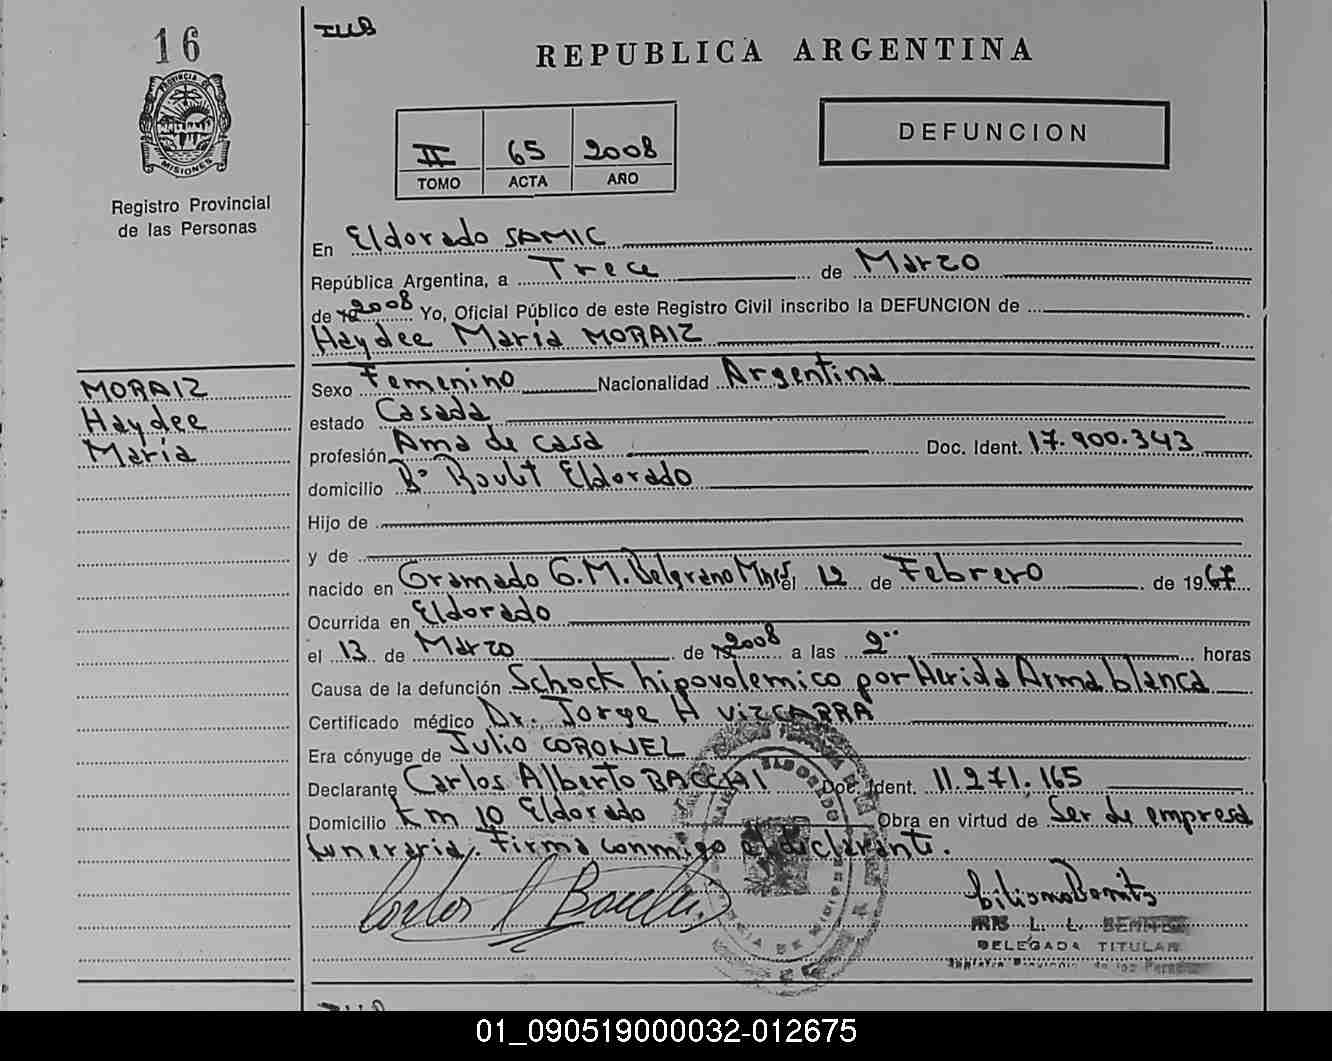 16
REPUBLICA ARGENTINA
DEFUNCION
II 65 2008
TOMO ACTA AÑO
PROVINCIA DE MISIONES
Registro Provincial
de las Personas
En Eldorado SAMIC
República Argentina, a Trece de Marzo
de 2008 Yo, Oficial Público de este Registro Civil inscribo la DEFUNCION de
Haydee María MORAIZ
MORAIZ
Haydee
María
Sexo Femenino Nacionalidad Argentina
estado Casada
profesión Ama de casa Doc. Ident. 17.900.343
domicilio Bº Roulet Eldorado
Hijo de
y de
nacido en Gramado G.M. Belgrano Mnes el 12 de Febrero de 1967
Ocurrida en Eldorado
el 13 de Marzo de 2008 a las 2 horas
Causa de la defunción Schock hipovolemico por Herida Arma blanca
Certificado médico Dr. Jorge A VIZCARRA
Era cónyuge de Julio CORONEL
Declarante Carlos Alberto BACCHI Doc. Ident. 11.271.165
Domicilio Km 10 Eldorado Obra en virtud de Ser de empresa
funeraria. Firma conmigo el declarante.
IRIS L. L. BENITEZ
DELEGADA TITULAR
Registro Provincial de las Personas
ELDORADO
PROVINCIA DE MISIONES
01_090519000032-012675